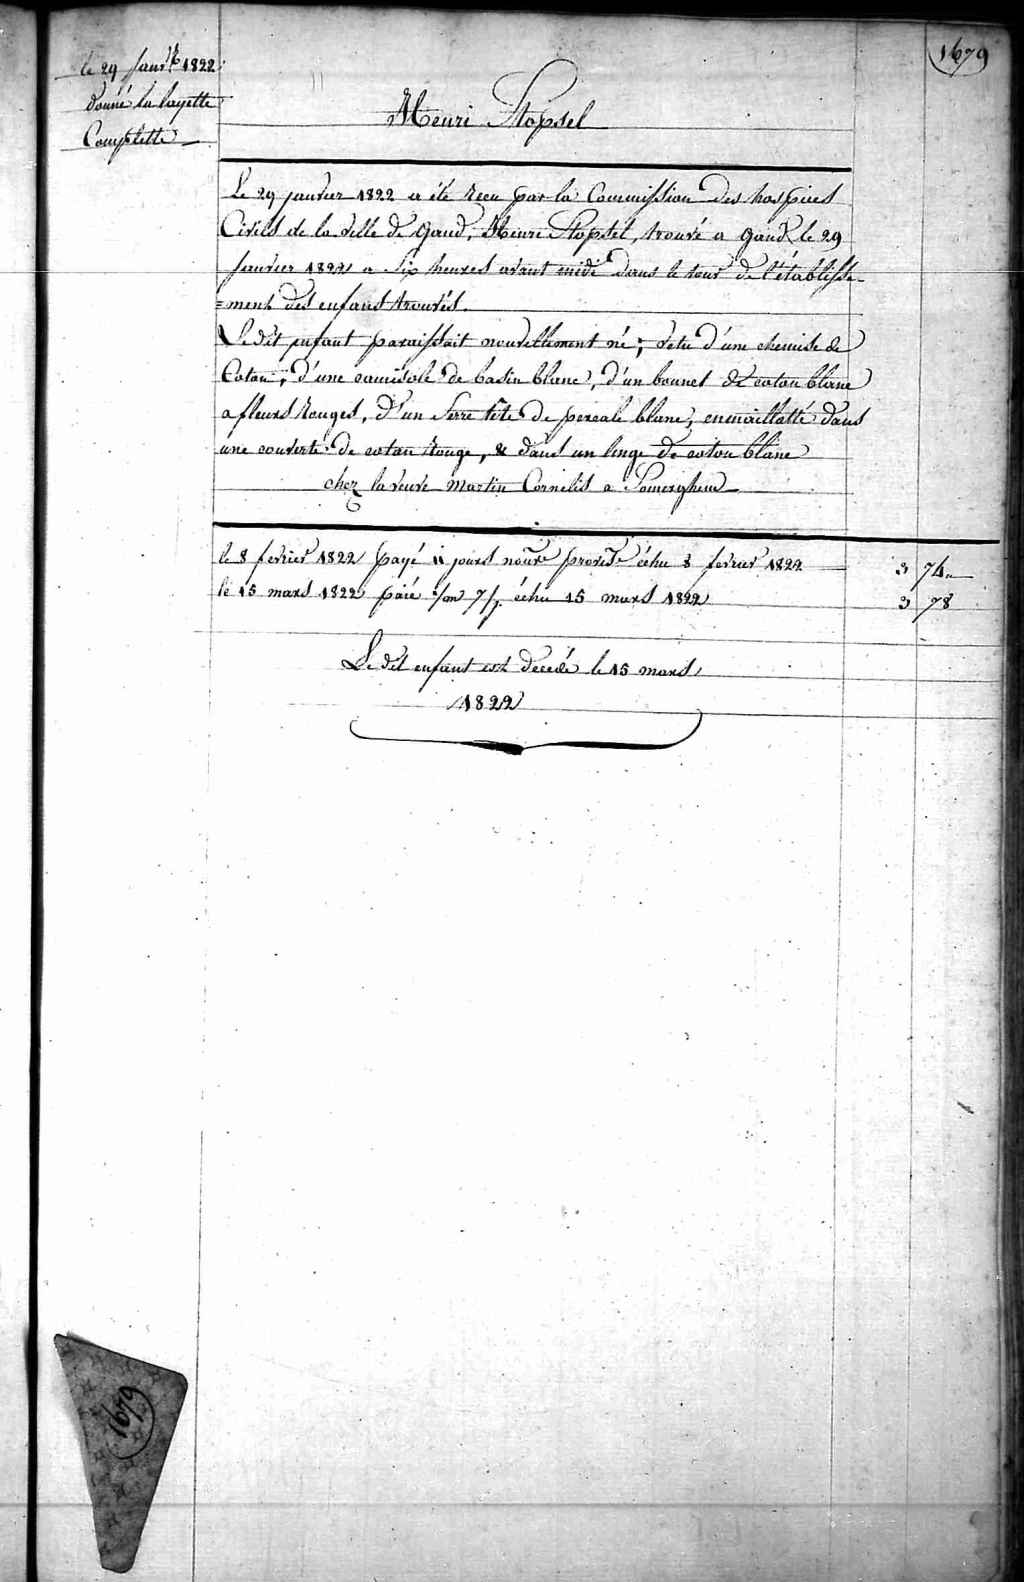 1679
le 29 Janvr 1822
donné la layette
Complette
Henri Stopsel
Le 29 janvier 1822 a été recu par la Commission des hospices
Civils de la ville de Gand, Henri Stopsel, trouvé a Gand le 29
Janvier 1822 a six heures avant midi dans le tour de l'établisse-
=ment des enfans trouvés.
Le dit enfant paraissait nouvellement né; vetu d'une chemise de
Coton; d'une camisole de basin blanc, d'un bonnet de coton blanc
a fleurs Rouges, d'un Serre tête de percale blanc, enmaillotté dans
une couverte de coton Rouge, & dans un linge de coton blanc
chez la veuve Martin Cornelis a Somerghem
le 8 fevrier 1822 payé 11 jours nourre provisre échu 8 fevrier 1822 3 74
le 15 mars 1822 païé 1/m 7/j. échu 15 mars 1822 3 78
Le dit enfant est decedé le 15 mars
1822
1679